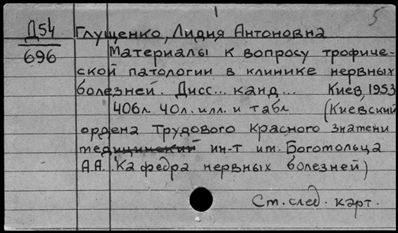 5
Д54 Глущенко, Лидия Антоновна
696 Материалы к вопросу трофиче-
ской патологии в клинике нервных
болезней. Дисс... канд... Киев, 1953
406л. 40л. илл. и табл (Киевский
ордена Трудового Красного Знамени
медицинский ин-т им. Богомольца
А.А. Кафедра нервных болезней)
Ст. след. карт.